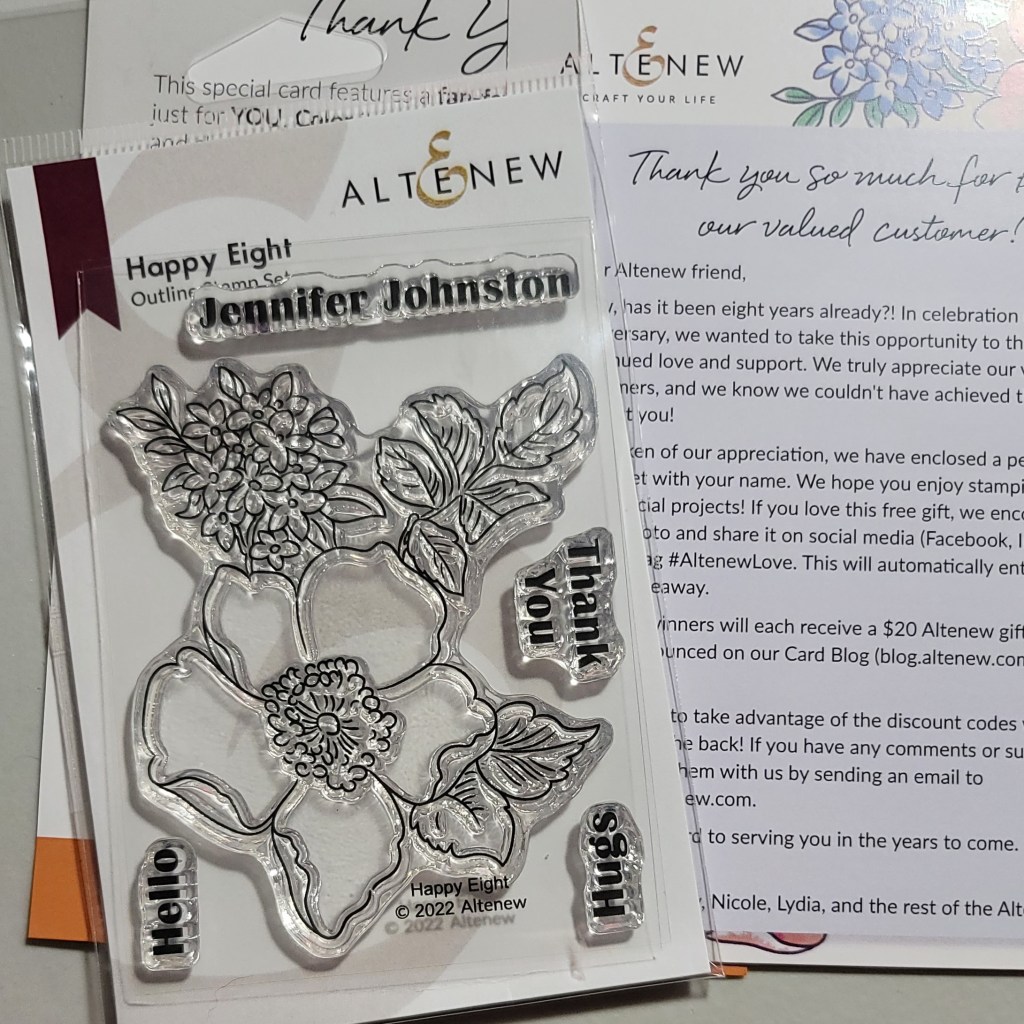 Thank
This special card features a
just for YOU.
and
ALTENEW
CRAFT YOUR LIFE
ALTENEW
Happy Eight
Outline Stamp Set
Jennifer Johnston
Thank
You
Hugs
Hello
Happy Eight
© 2022 Altenew
© 2022 Altenew
Thank you so much for
our valued customer!
Altenew friend,
has it been eight years already?! In celebration
we wanted to take this opportunity to
love and support. We truly appreciate our
and we know we couldn't have achieved
you!
of our appreciation, we have enclosed a
with your name. We hope you enjoy
projects! If you love this free gift, we
and share it on social media (Facebook,
#AltenewLove. This will automatically
will each receive a $20 Altenew
on our Card Blog (blog.altenew.com
to take advantage of the discount codes
back! If you have any comments or
with us by sending an email to
ew.com.
to serving you in the years to come.
Nicole, Lydia, and the rest of the